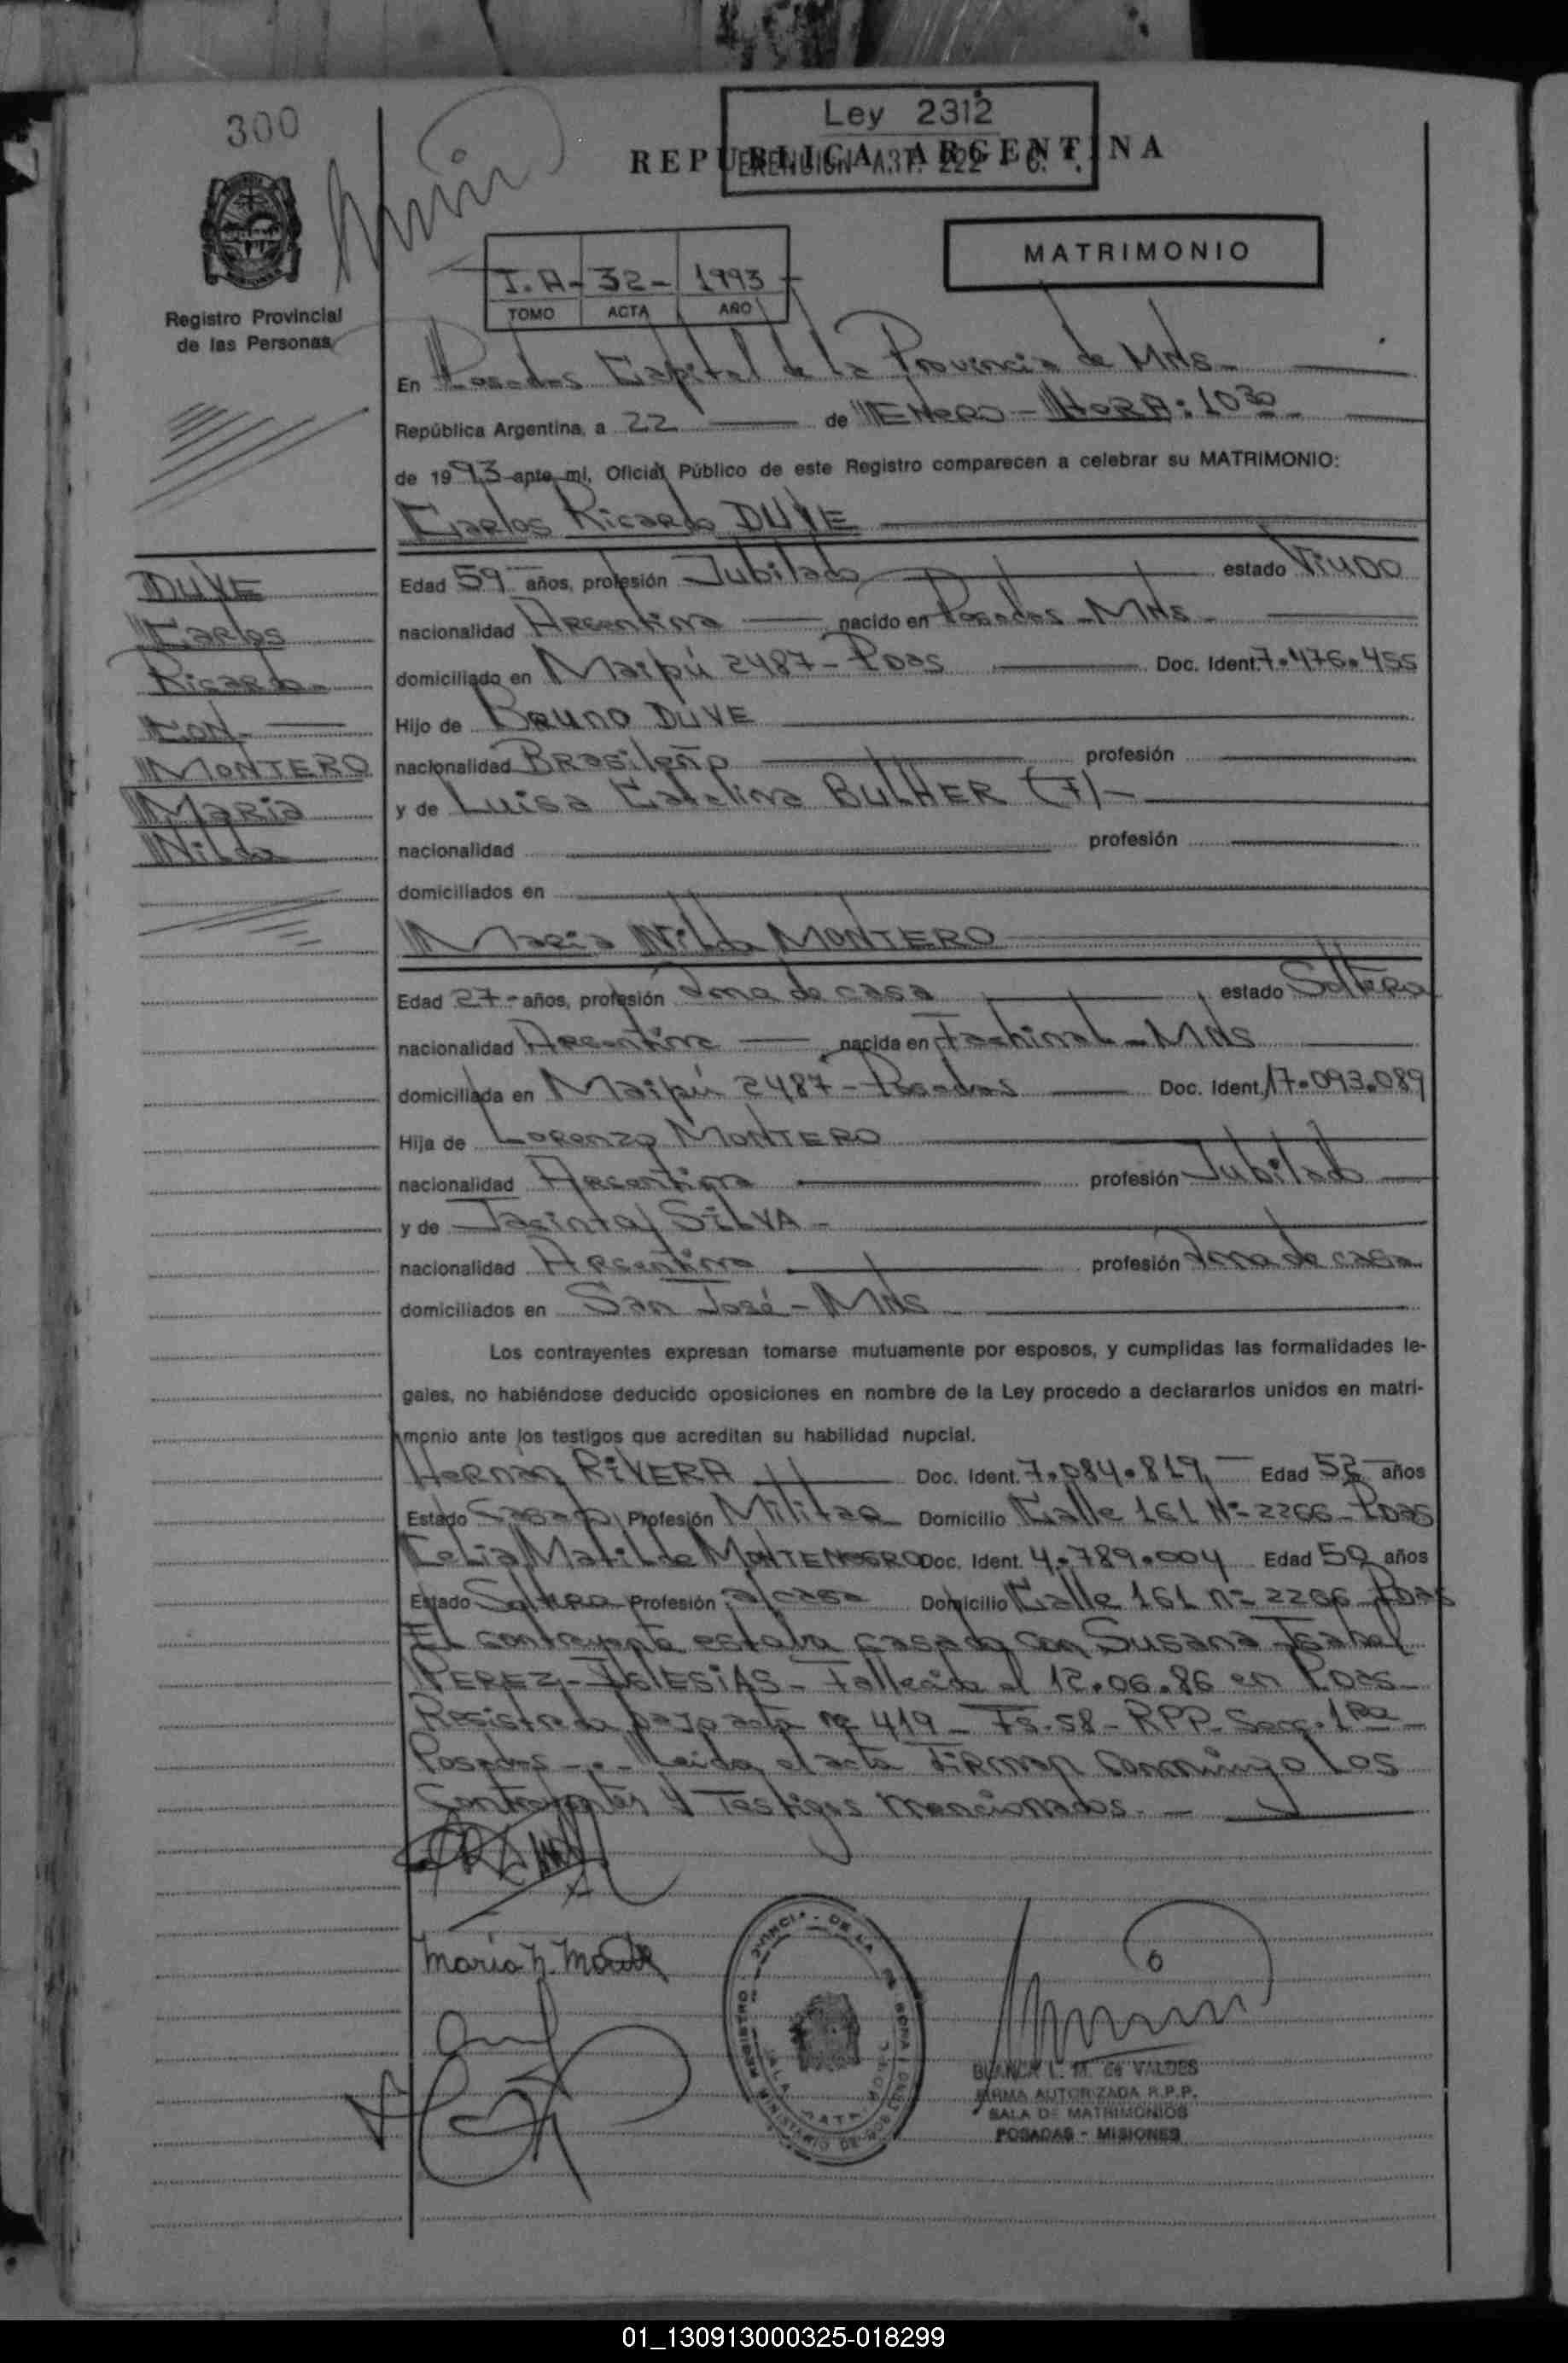 300
Ley 2312
REPUBLICA ARGENTINA
ART. 222 C.
MATRIMONIO
T. A- 32- 1993
TOMO ACTA AÑO
Registro Provincial
de las Personas
En Posadas Capital de la Provincia de Mnes
República Argentina, a 22 de ENERO - HORA: 10 30
de 1993 ante mi, Oficial Público de este Registro comparecen a celebrar su MATRIMONIO:
Carlos Ricardo DUVE
DUVE
Carlos
Ricardo
CON
MONTERO
Maria
Nilda
Edad 59 años, profesión Jubilado estado Viudo
nacionalidad Argentina nacido en Posadas - Mnes
domiciliado en Maipú 2487 - Pdas Doc. Ident. 7.476.455
Hijo de Bruno DUVE
nacionalidad Brasileño profesión
y de Luisa Catalina BULHER (F)-
nacionalidad profesión
domiciliados en
Maria Nilda MONTERO
Edad 27- años, profesión Ama de casa estado Soltera
nacionalidad Argentina nacida en Fachinal - Mnes
domiciliada en Maipú 2487 - Posadas Doc. Ident. 17.093.089
Hija de Lorenzo MONTERO
nacionalidad Argentina profesión Jubilado
y de Jacinta SILVA -
nacionalidad Argentina profesión Ama de casa
domiciliados en San José - Mnes
Los contrayentes expresan tomarse mutuamente por esposos, y cumplidas las formalidades le-
gales, no habiéndose deducido oposiciones en nombre de la Ley procedo a declararlos unidos en matri-
monio ante los testigos que acreditan su habilidad nupcial.
Hernán RIVERA Doc. Ident. 7.084.819 Edad 52 años
Estado Casado Profesión Militar Domicilio Calle 161 Nº 2266 - Pdas
Celia Matilde MONTENEGRO Doc. Ident. 4.789.004 Edad 50 años
Estado Soltera Profesión a/casa Domicilio Calle 161 nº 2266 Pdas
El contrayente estaba casado con Susana Isabel
PEREZ - IGLESIAS - Fallecida el 12.06.86 en Pdas -
Registrada bajo acta nº 419 - Fs. 58 - RPP - Secc. 1ra -
Posadas -.- Leida el acta firman conmigo los
Contrayentes y Testigos mencionados. -
Maria N. Monte
BLANCA L. M. de VALDES
FIRMA AUTORIZADA R.P.P.
SALA DE MATRIMONIOS
POSADAS - MISIONES
01_130913000325-018299